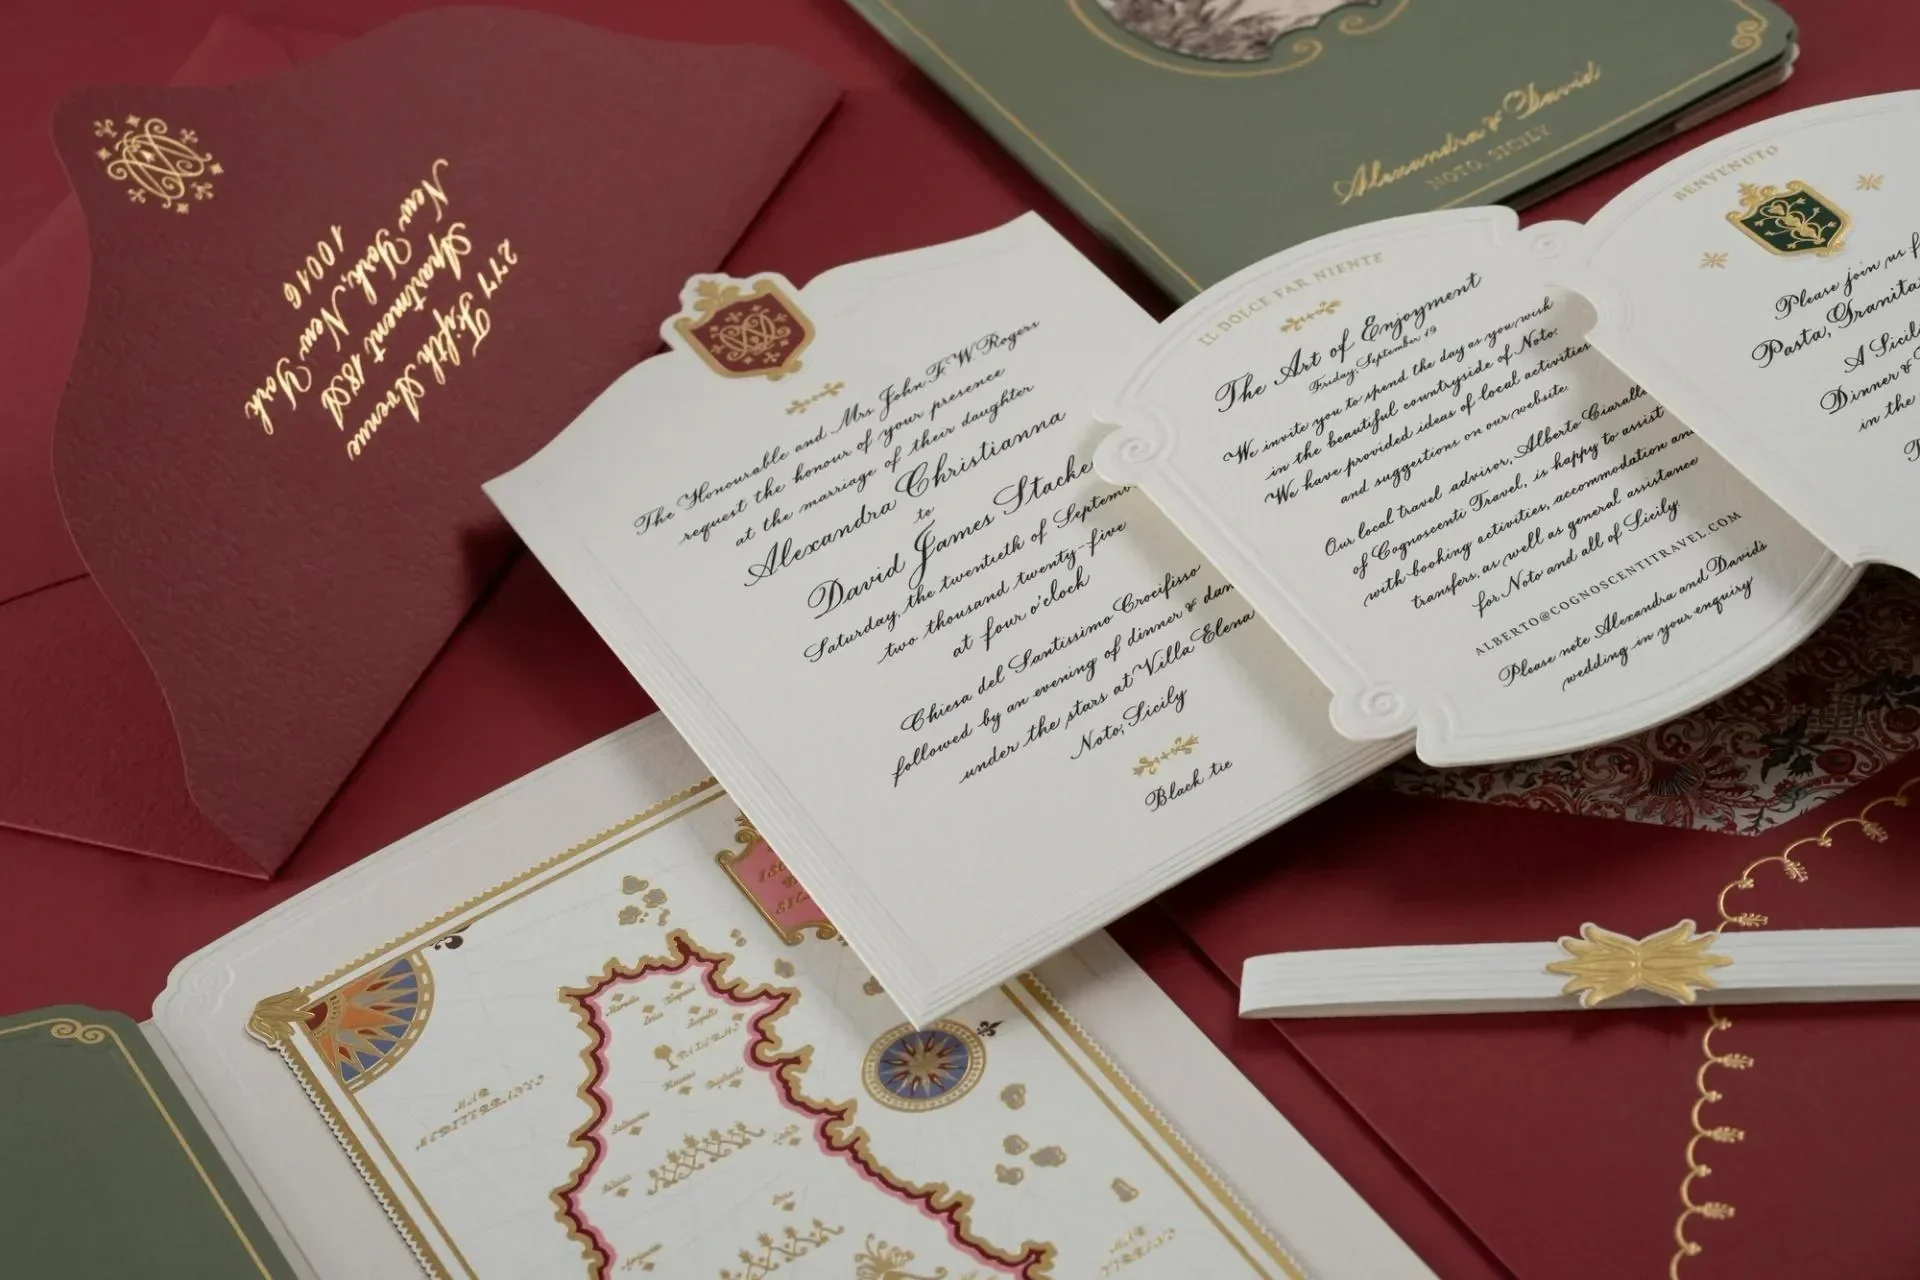 277 Fifth Avenue
Apartment 18A
New York, New York
10016
Alexandra & David
NOTO, SICILY
The Honourable and Mrs John F. W. Rogers
request the honour of your presence
at the marriage of their daughter
Alexandra Christianna
to
David James Stacke
Saturday, the twentieth of Septem
two thousand twenty-five
at four o'clock
Chiesa del Santissimo Crocifisso
followed by an evening of dinner & dan
under the stars at Villa Elena
Noto, Sicily
Black tie
IL DOLCE FAR NIENTE
The Art of Enjoyment
Friday, September 19
We invite you to spend the day as you wish
in the beautiful countryside of Noto.
We have provided ideas of local activities
and suggestions on our website.
Our local travel advisor, Alberto Ciaralla
of Cognoscenti Travel, is happy to assist
with booking activities, accommodation an
transfers, as well as general assistance
for Noto and all of Sicily.
ALBERTO@COGNOSCENTITRAVEL.COM
Please note Alexandra and David's
wedding in your enquiry
BENVENUTO
Please join us f
Pasta, Granita
A Sicil
Dinner &
in the
MAR
MEDITERRANO
PALERMO
MAR